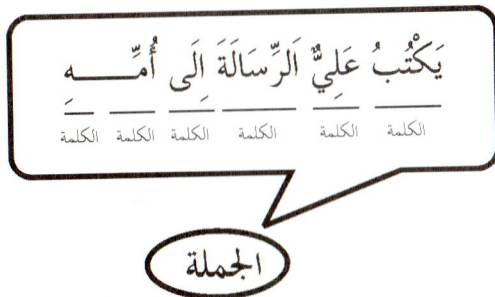 يَكْتُبُ عَلِيٌّ اَلرِّسَالَةَ اِلَى أُمِّـــــهِ
الكلمة الكلمة الكلمة الكلمة الكلمة الكلمة
الجملة